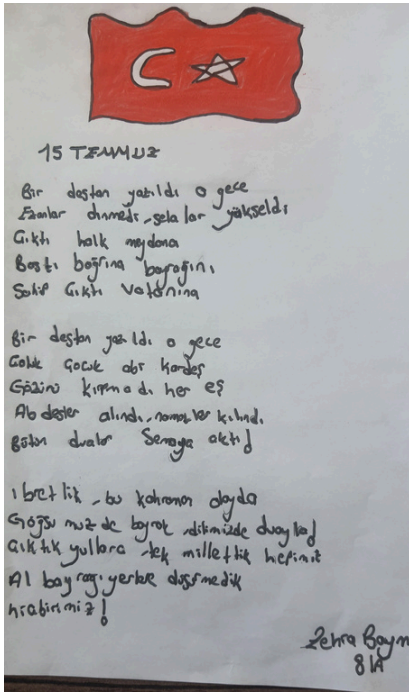 15 TEMMUZ
Bir destan yazıldı o gece
Ezanlar dinmedi, selalar yükseldi
Çıktı halk meydana
Bastı bağrına bayrağını
Sahip Çıktı Vatanına
Bir destan yazıldı o gece
Çoluk Çocuk abi kardeş
Gözünü kırpmadı her eş
Abdestler alındı, namazlar kılındı
Bütün dualar Semaya aktı
ibretlik, bu kahraman olayda
Göğsümüzde bayrak, dilimizde duayla
Çıktık yollara, tek millettik hepimiz
Al bayrağı yerlere düşürmedik
hiçbirimiz!
Zehra
8/A